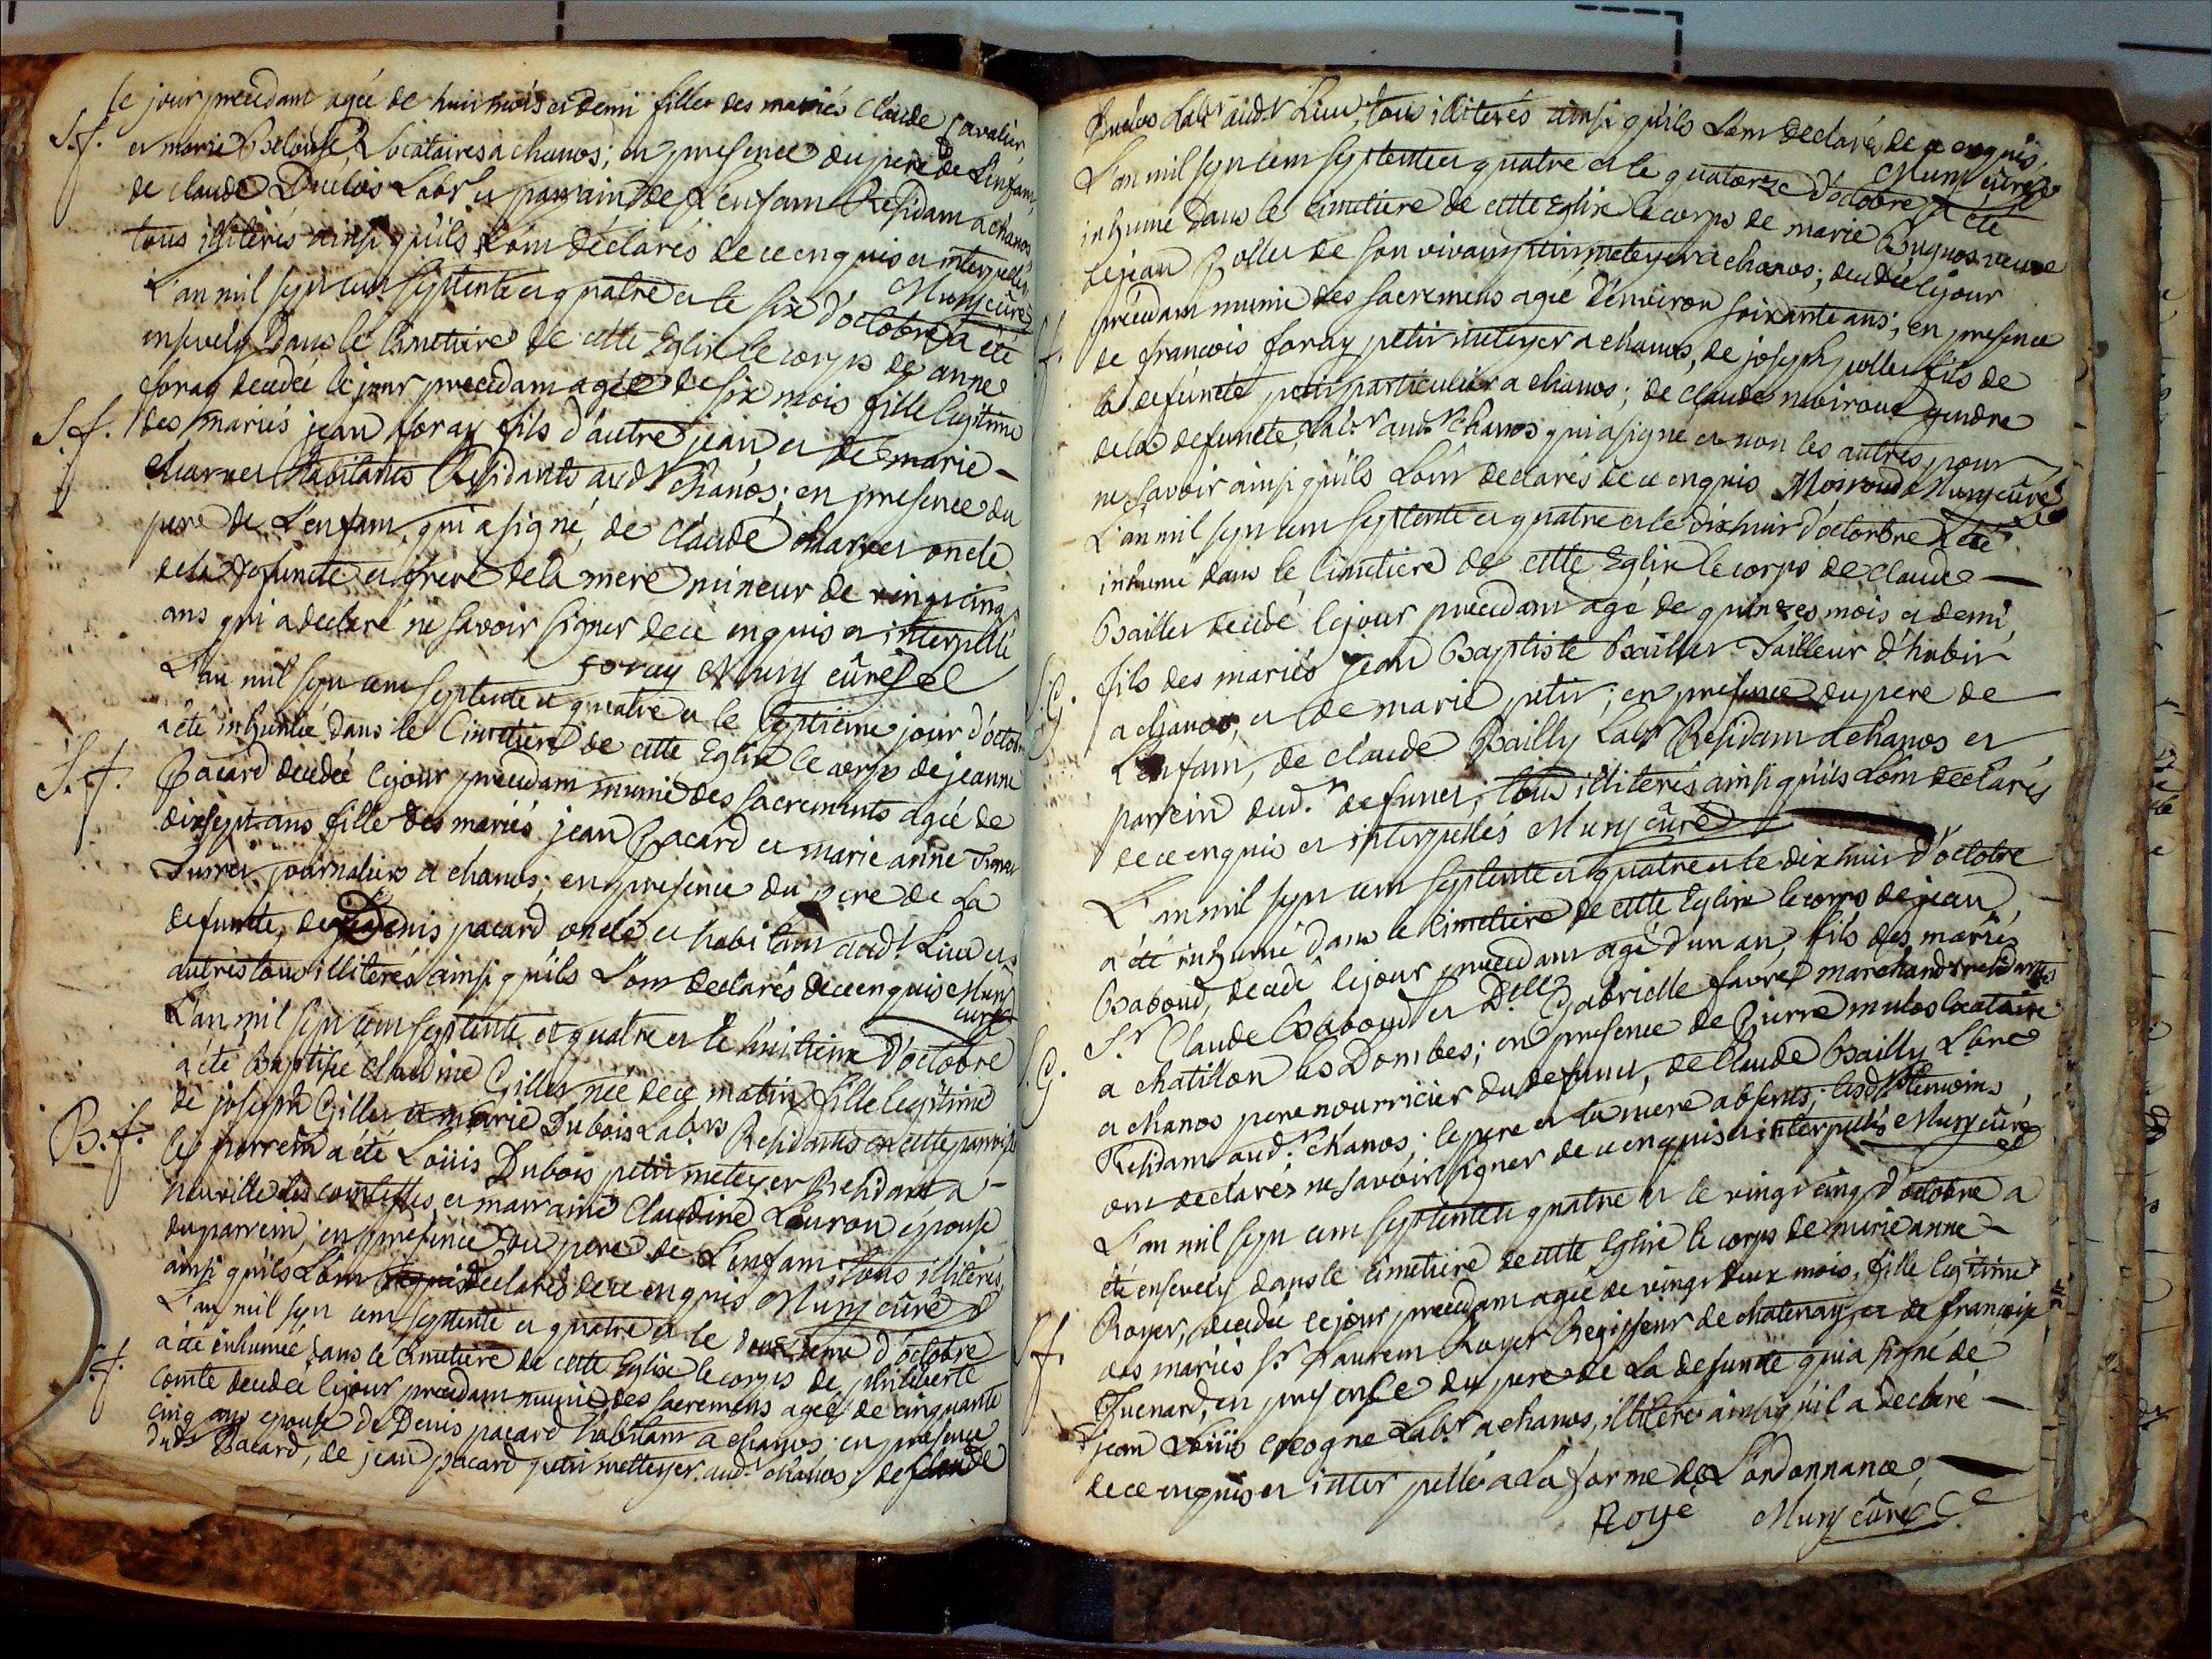 le jour precedam agée de huit mois et demi fille des mariés Claude Cavalier,
S.f.
et marie Belouse, Locataires a chanos; en presence du pere de L'enfam,
de claude Duclos Labr et parrain de L'enfam Residam a chanos
tous illiterés ainsi qu'ils L'om déclarés de ce enquis et interpellés
Mury curé
L'an mil sept cem septente et quatre et le six d'octobre a été
ensevely dans le Cimetiere de cette Eglise le corps de anne
foray decedée le jour precedam agée de six mois fille legitime
S.f.
des mariés jean foray fils d'autre jean et de marie -
charvet habitants Residants aud.t chanos; en presence du
pere de L'enfam, qui a signé, de Claude charvet oncle
de la defuncte et frere de la mere mineur de vingt cinq
ans qui a declaré ne savoir signer de ce enquis et interpellé
foray Mury curé
L'an mil sept cem septente et quatre et le septieme jour d'octobre
a été inhumée dans le Cimetiere de cette Eglise le corps de jeanne
S.f.
Pacard decedée le jour precedam munie des sacrements agée de
dix sept ans fille des mariés jean Pacard et marie anne
journaliers a chanos; en presence du pere de La
defuncte, de Denis pacard oncle et habitam aud.t Lieu et
autres tous illiterés ainsi qu'ils L'om declarés de ce enquis Mury
curé
L'an mil sept cem septente et quatre et le huitieme d'octobre
a été Baptisée Claudine Gillet née de ce matin fille legitime
B.f.
de joseph Gillet et marie Dubois Lab.rs Residants en cette paroisse
le parrein a été Loüis Dubois petit meteyer Residant a
neuville les comtesses, et marraine Claudine Lauron epouse
du parrein; en presence du pere de L'enfam tous illiterés,
ainsi qu'ils L'om declarés de ce enquis Mury curé
L'an mil sept cem septente et quatre et le douzieme d'octobre
a été inhumée dans le Cimetiere de cette Eglise le corps de philiberte
S.f.
comte decedée le jour precedam munie des sacremens agée de cinquante
cinq ans epouse de Denis pacard habitam a chanos; en presence
dud.t Pacard, de jean pacard petit metteyer aud.t chanos; de claude
Duclos Labr aud.t Lieu, tous illiterés ainsi qu'ils L'om declaré de ce enquis
Mury curé
L'an mil sept cem septente et quatre et le quatorze d'octobre a été
inhumé dans le Cimetiere de cette Eglise le corps de marie Bugnos veuve
de jean Pollet de son vivam petit meteyer a chanos; decedée le jour
precedam munie des sacremens agée d'environ soixante ans; en presence
S.f.
de francois foray petit meteyer a chanos, de joseph pollet fils de
la defuncte petit particulier a chanos; de claude moiroud gendre
de la defuncte, Lab.r aud.t chanos qui a signé et non les autres pour
ne savoir ainsi qu'ils L'om declarés de ce enquis Moiroud Mury curé
L'an mil sept cem septente et quatre et le dixhuit d'octorbre a été
inhumé dans le Cimetiere de cette Eglise le corps de claude -
Baillet decedé le jour precedam agé de quinzes mois et demi,
S.G.
fils des mariés jean Baptiste Baillet Tailleur d'habit
a chanos, et de marie petit; en presence du pere de
L'enfam, de claude Bailly Labr Residam a chanos et
parrein dud.t defunct; tous illiterés ainsi qu'ils L'om declarés
de ce enquis et interpellés Mury curé
L'an mil sept cem septente et quatre et le dix huit d'octobre
a été inhumé dans le Cimetiere de cette Eglise le corps de jean
Baboud, decedé le jour precedam agé d'un an, fils des mariés
S.G.
S.r Claude Baboud et D.lle Gabrielle favre marchands residants
a chatillon les Dombes; en presence de Pierre mulos Locataire
a chanos pere nourricier du defunct, de Claude Bailly Labr
Residam aud.t chanos; le pere et la mere absents; lesd.ts témoins
om declarés ne savoir signer de ce enquis et interpellés Mury curé
L'an mil sept cem septente et quatre et le vingt cinq d'octobre a
été ensevely dans le Cimetiere de cette Eglise le corps de marie anne -
Royer, decedée le jour precedam agée de vingt deux mois, fille legitime
S.f.
des mariés S.r Laurem Royer Regisseur de chatenay, et de francoise
Guenard, en presence du pere de La defuncte qui a signé de
jean Loüis Lab.r a chanos, illiteré ainsi qu'il a declaré -
de ce enquis et inter pellé a La forme de L'ordonnance;
Royé Mury curé